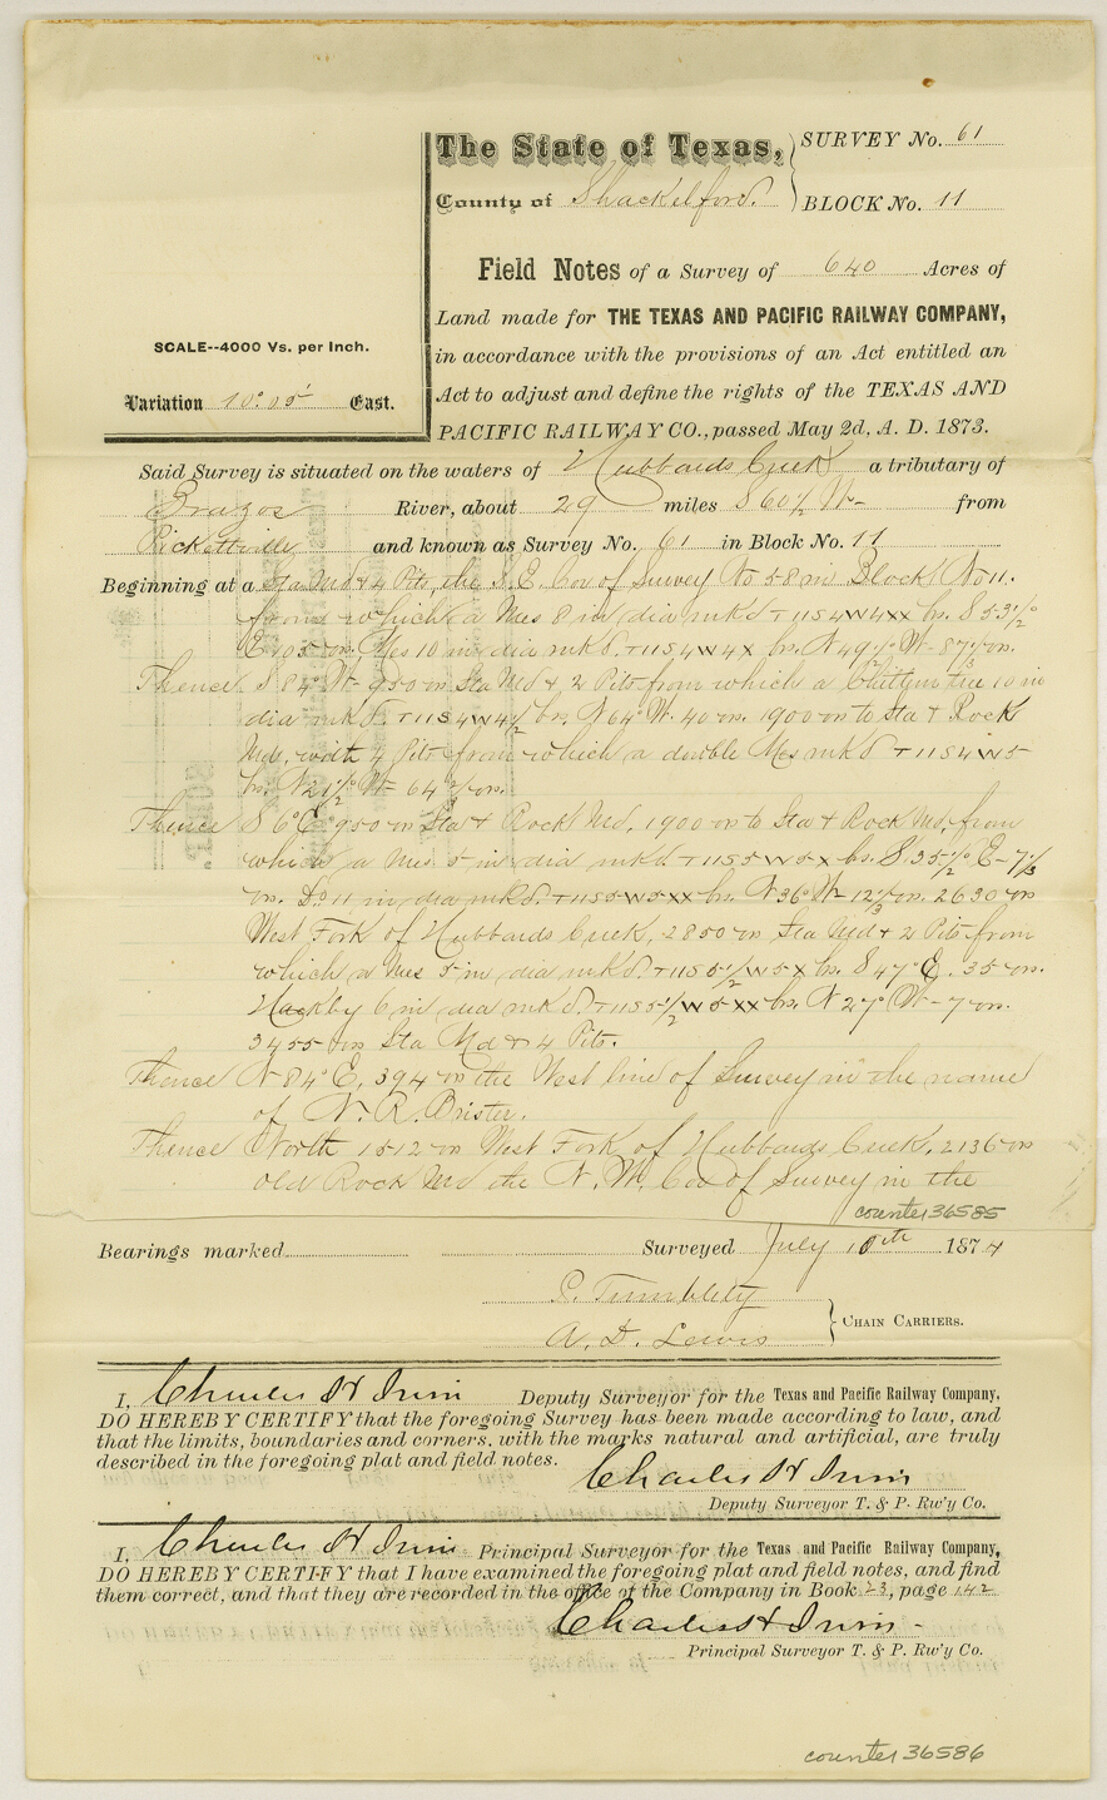 The State of Texas, SURVEY No. 61
County of Shackelford. BLOCK No. 11
Field Notes of a Survey of 640 Acres of
Land made for THE TEXAS AND PACIFIC RAILWAY COMPANY,
SCALE--4000 Vs. per Inch.
in accordance with the provisions of an Act entitled an
Act to adjust and define the rights of the TEXAS AND
Variation 10°.05' East.
PACIFIC RAILWAY CO., passed May 2d, A. D. 1873.
Said Survey is situated on the waters of Hubbards Creek a tributary of
Brazos River, about 29 miles S 60½ W- from
Pickettville and known as Survey No. 61 in Block No. 11
Beginning at a Sta Md & 4 Pits, the S. E. Cor of Survey No 58 in Block No 11.
from which a Mes 8 in dia mkd T11S4W4XX brs. S 53½°
E. 105 vrs. Mes 10 in dia mkd. T11S4W4X brs. N 49½° W- 87⅓ vrs.
Thence S 84° W- 950 vrs Sta Md & 2 Pits from which a Chittim tree 10 in
dia mkd. T11S4W4½ brs. N 64° W. 40 vrs. 1900 vrs to Sta & Rock
Md, with 4 Pits from which a double Mes mkd T11S4W5
brs. N 21½° W- 64⅔ vrs.
Thence S 6° E. 950 vrs Sta & Rock Md, 1900 vrs to Sta & Rock Md, from
which a Mes 5 in dia mkd. T11S5W5X brs. S 35½° E- 7⅓
vrs. Do 11 in dia mkd. T11S5W5XX brs. N 36° W- 12⅓ vrs. 2630 vrs
West Fork of Hubbards Creek, 2850 vrs Sta Md & 2 Pits from
which a Mes 5 in dia mkd. T11S5½W5X brs. S 47° E. 35 vrs.
Hackby 6 in dia mkd. T11S5½W5XX brs. N 27° W- 7 vrs.
3455 vrs Sta Md & 4 Pits.
Thence N 84° E, 394 vrs the West line of Survey in the name
of N. R. Brister.
Thence North 1512 vrs West Fork of Hubbards Creek, 2136 vrs
old Rock Md the N. W. Cor of Survey in the
counter 36585
Bearings marked Surveyed July 10th 1874
Tumblety
A. D. Lewis
CHAIN CARRIERS.
I, Charles H Irvin Deputy Surveyor for the Texas and Pacific Railway Company,
DO HEREBY CERTIFY that the foregoing Survey has been made according to law, and
that the limits, boundaries and corners, with the marks natural and artificial, are truly
described in the foregoing plat and field notes.
Charles H Irvin
Deputy Surveyor T. & P. Rw'y Co.
I, Charles H Irvin Principal Surveyor for the Texas and Pacific Railway Company,
DO HEREBY CERTIFY that I have examined the foregoing plat and field notes, and find
them correct, and that they are recorded in the office of the Company in Book 23, page 142
Charles H Irvin
Principal Surveyor T. & P. Rw'y Co.
counter 36586